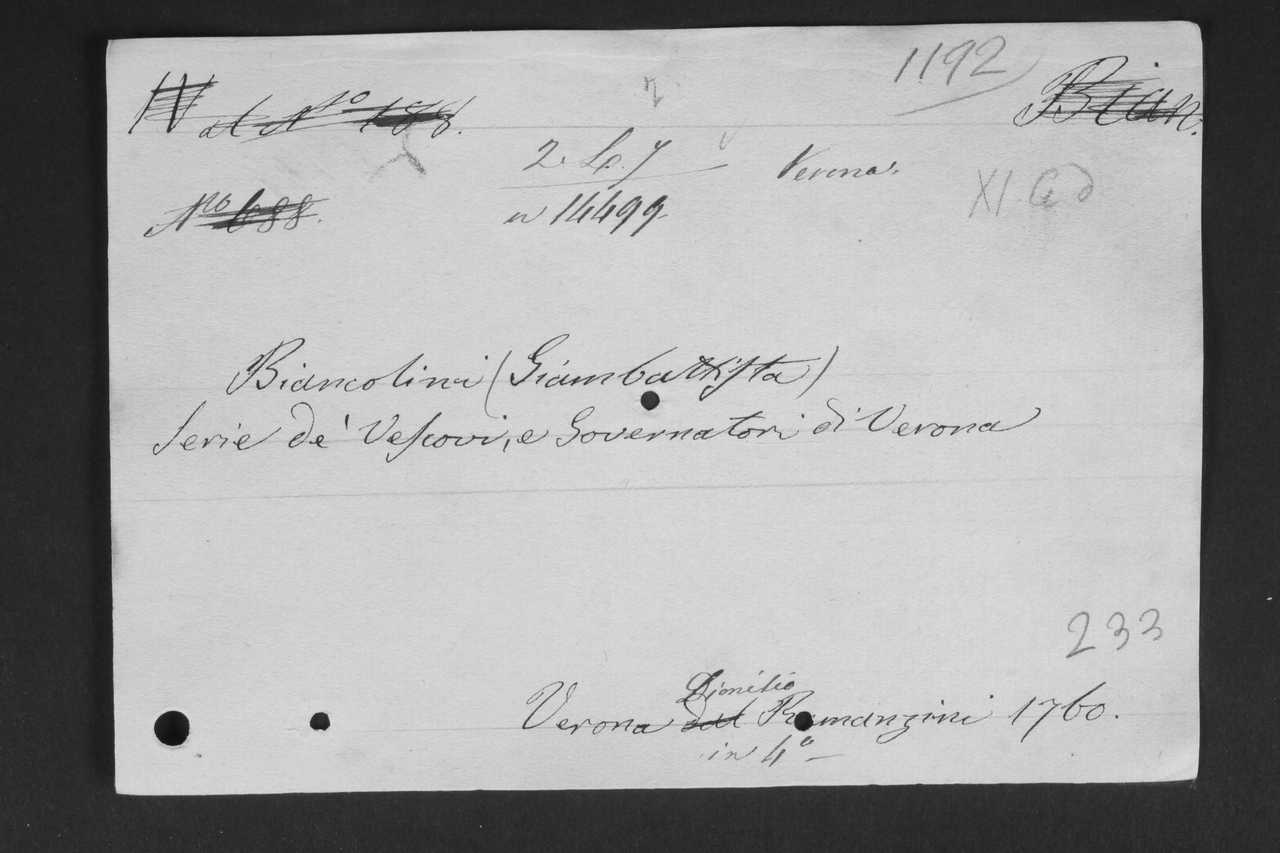 1192
Bian.
IV
al No 188.
2. L. 7
Verona.
XI. G d
No 688.
n 14499
Biancolini (Giambattiſta)
Serie de' Veſcovi, e Governatori di Verona
233
Dionisio
Verona dal Ramanzini 1760.
in 4o